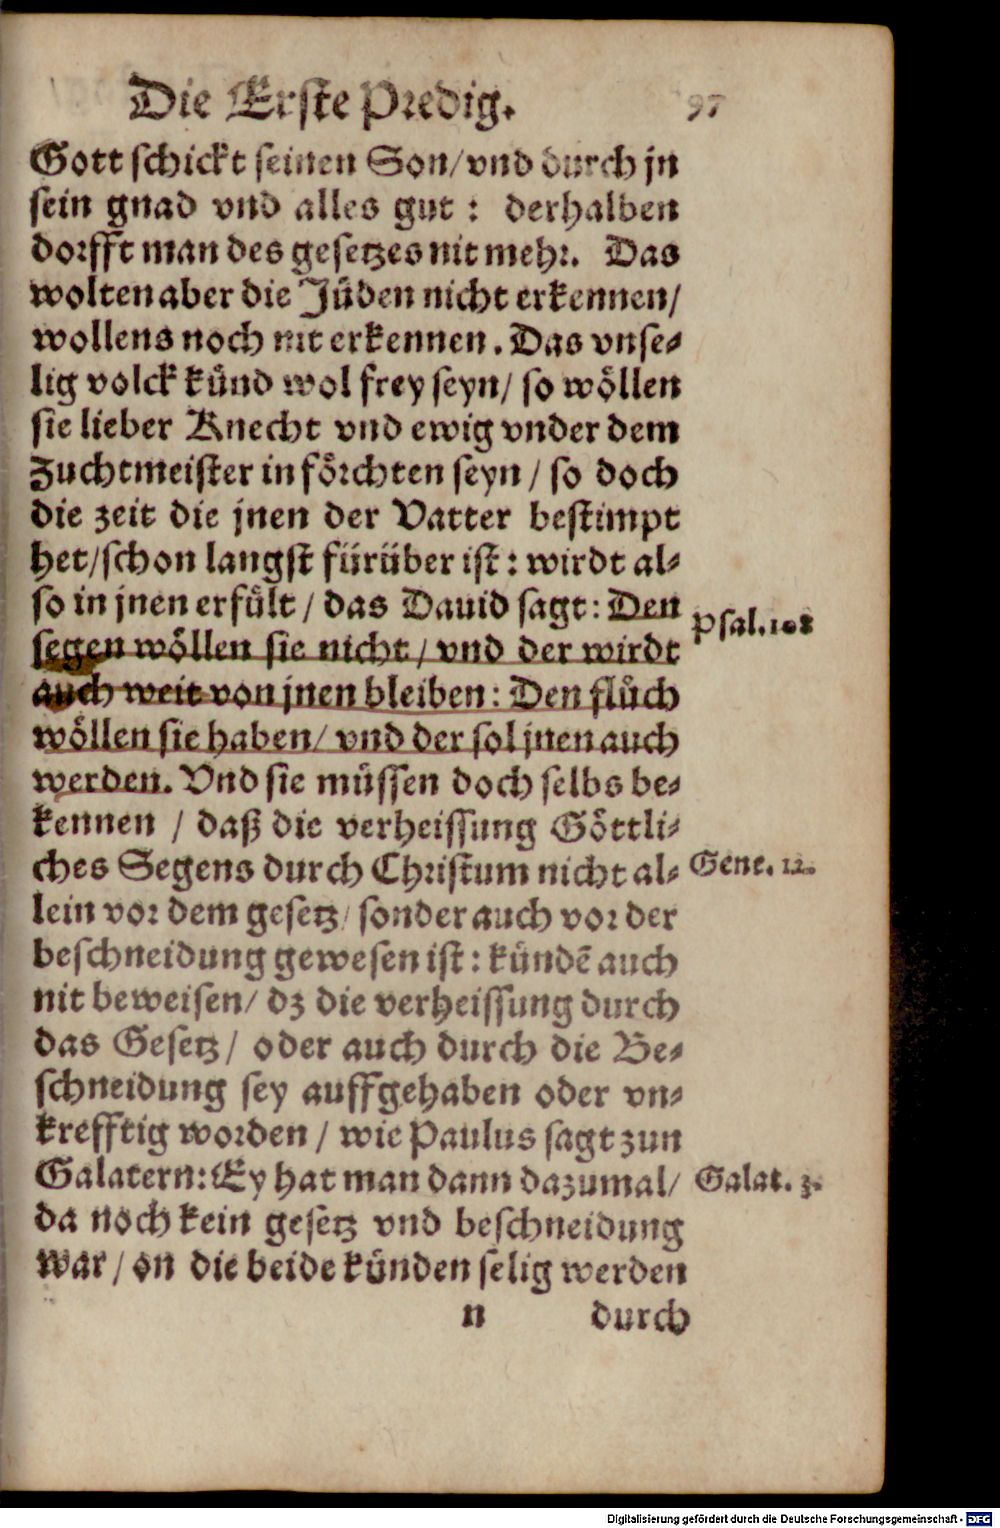 Die Erste Predig. 97
Gott schickt seinen Son/ vnd durch jn
sein gnad vnd alles gut : derhalben
dorfft man des gesetzes nit mehr. Das
wolten aber die Jüden nicht erkennen/
wollens noch nit erkennen. Das vnse-
lig volck künd wol frey seyn/ so wöllen
sie lieber Knecht vnd ewig vnder dem
Zuchtmeister in förchten seyn / so doch
die zeit die jnen der Vatter bestimpt
het/schon langst fürüber ist : wirdt al-
so in jnen erfült / das Dauid sagt: Den
Psal. 108
segen wöllen sie nicht / vnd der wirdt
auch weit von jnen bleiben: Den flüch
wöllen sie haben/ vnd der sol jnen auch
werden. Vnd sie müssen doch selbs be-
kennen / daß die verheissung Göttli-
ches Segens durch Christum nicht al-
Gene. 12.
lein vor dem gesetz/ sonder auch vor der
beschneidung gewesen ist : kündẽ auch
nit beweisen/ dz die verheissung durch
das Gesetz / oder auch durch die Be-
schneidung sey auffgehaben oder vn-
krefftig worden / wie Paulus sagt zun
Galatern: Ey hat man dann dazumal/
Galat. 3.
da noch kein gesetz vnd beschneidung
war / on die beide künden selig werden
n durch
Digitalisierung gefördert durch die Deutsche Forschungsgemeinschaft - DFG